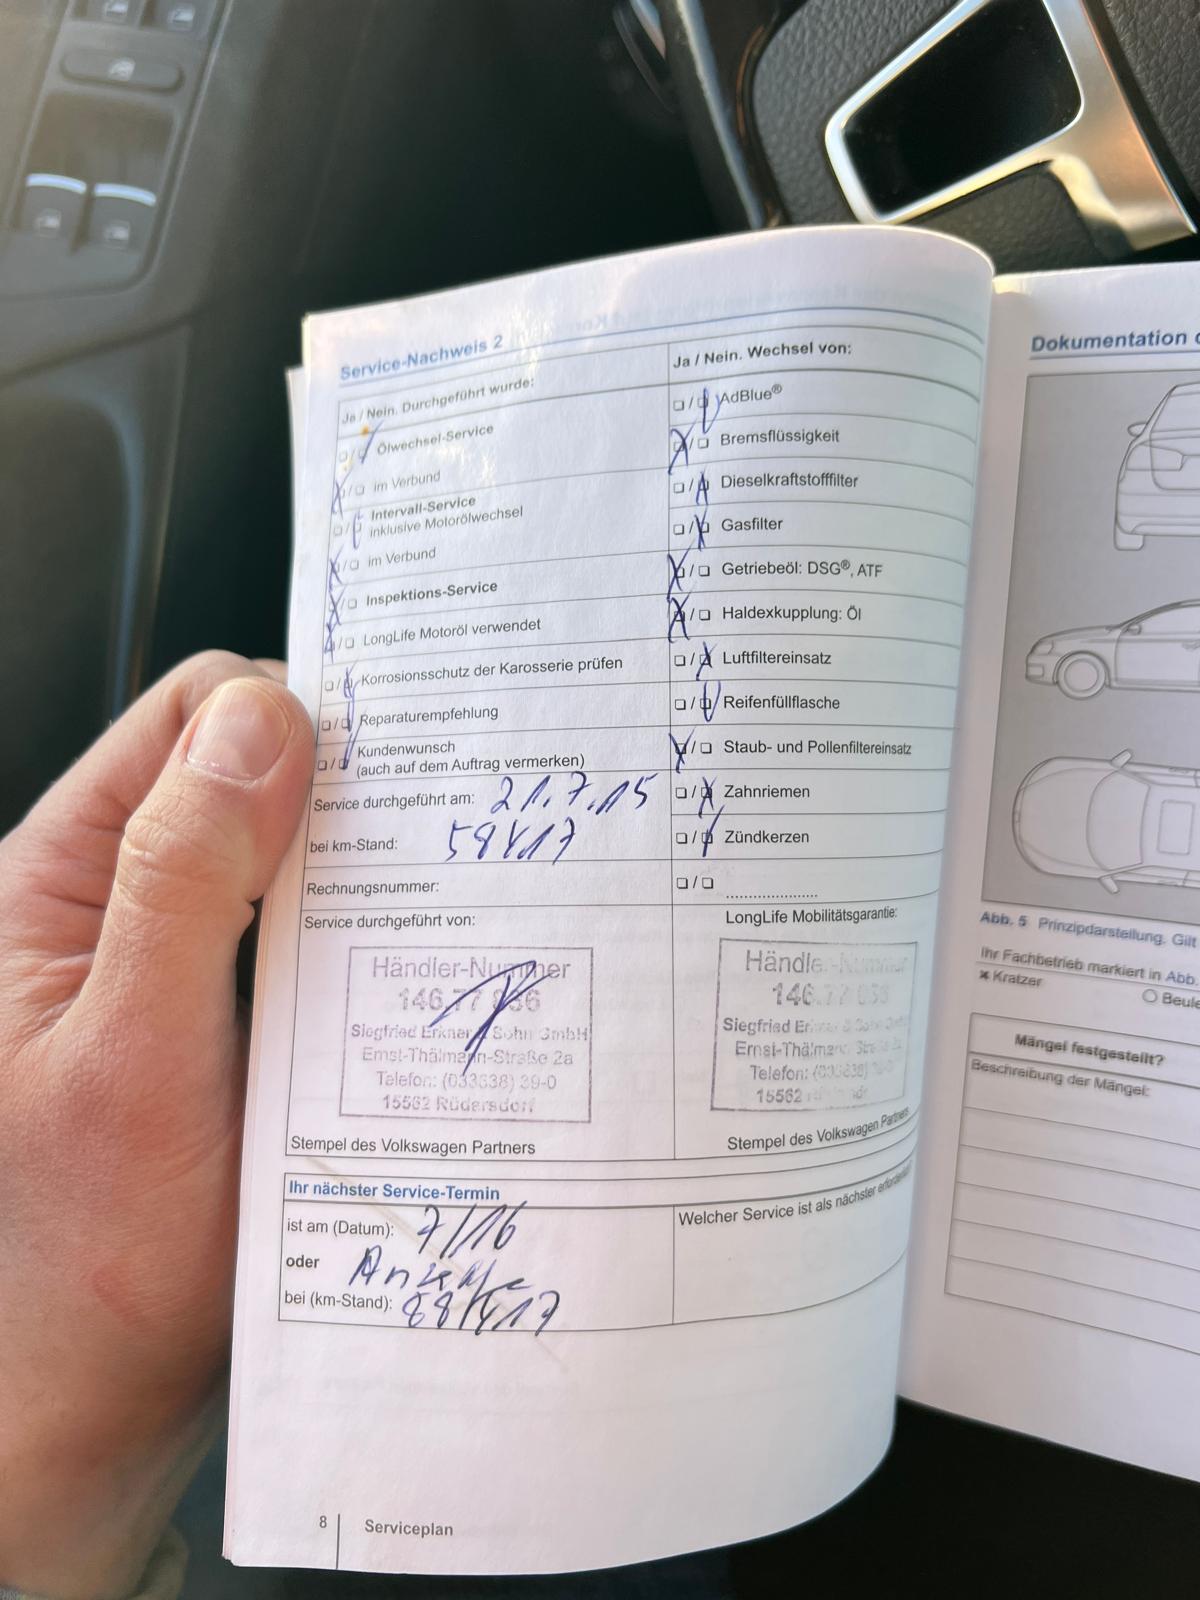 Service-Nachweis 2
Ja / Nein. Durchgeführt wurde:
Ölwechsel-Service
im Verbund
Intervall-Service
inklusive Motorölwechsel
im Verbund
Inspektions-Service
LongLife Motoröl verwendet
Korrosionsschutz der Karosserie prüfen
Reparaturempfehlung
Kundenwunsch
(auch auf dem Auftrag vermerken)
Service durchgeführt am: 21.7.15
bei km-Stand:
Rechnungsnummer:
Ja / Nein. Wechsel von:
AdBlue®
Bremsflüssigkeit
Dieselkraftstofffilter
Gasfilter
Getriebeöl: DSG®, ATF
Haldexkupplung: Öl
Luftfiltereinsatz
Reifenfüllflasche
Staub- und Pollenfiltereinsatz
Zahnriemen
Zündkerzen
Service durchgeführt von:
Händler-Nummer
146.77 036
Siegfried Erkner & Sohn GmbH
Ernst-Thälmann-Straße 2a
Telefon: (033638) 39-0
15562 Rüdersdorf
Stempel des Volkswagen Partners
LongLife Mobilitätsgarantie:
Händler-Nummer
146.77 036
Siegfried Erkner & Sohn GmbH
Ernst-Thälmann-Straße 2a
Telefon: (033638)
15562
Stempel des Volkswagen Partners
Ihr nächster Service-Termin
ist am (Datum): 7/16
oder Anzeige
bei (km-Stand):
Welcher Service ist als nächster erforderlich
8
Serviceplan
Dokumentation
Abb. 5 Prinzipdarstellung. Gilt
Ihr Fachbetrieb markiert in Abb.
× Kratzer
Beule
Mängel festgestellt?
Beschreibung der Mängel: